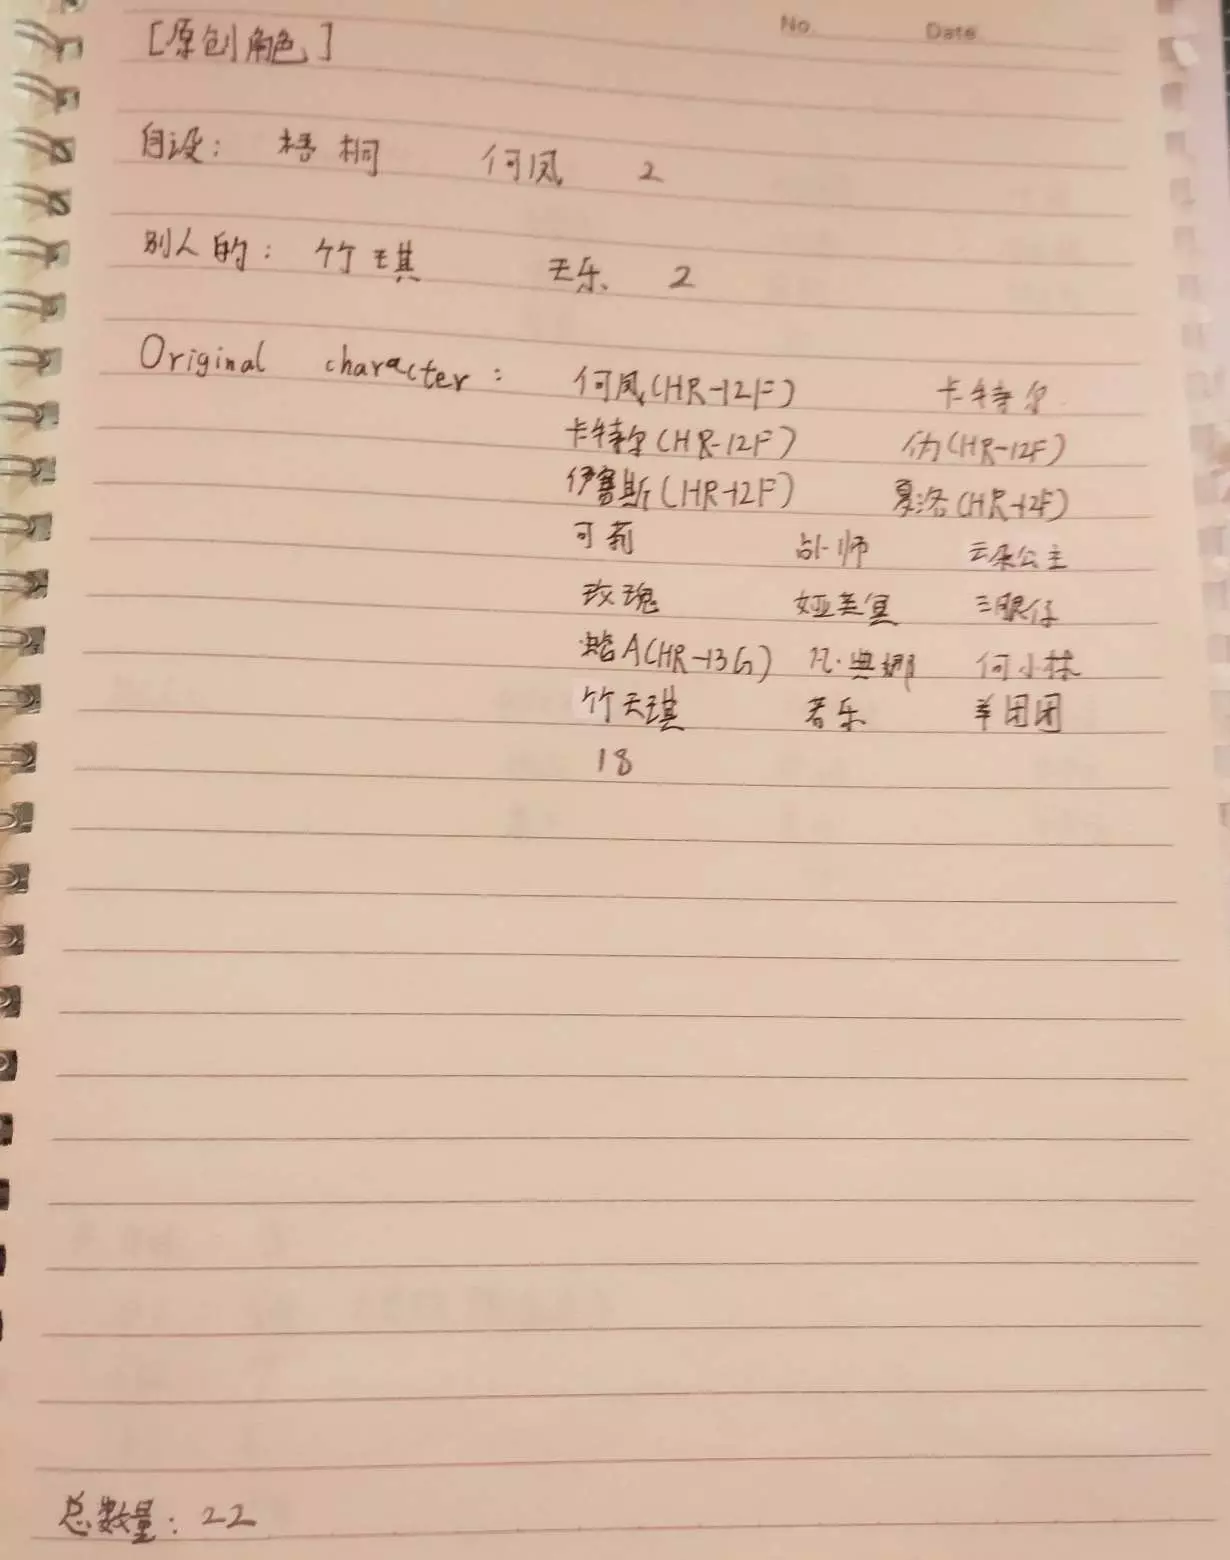 No. Date
[原创角色]
自设: 梧桐 何凤 2
别人的: 竹琪 天乐 2
Original character: 何凤(HR-12F) 卡特尔
卡特尔(HR-12F) 伪(HR-12F)
伊赛斯(HR-12F) 夏洛(HR-12F)
可莉 占卜师 云朵公主
玫瑰 娅美 三眼仔
蛤A(HR-13G) 凡·典娜 何小林
竹天琪 若乐 羊团团
18
总数量: 22